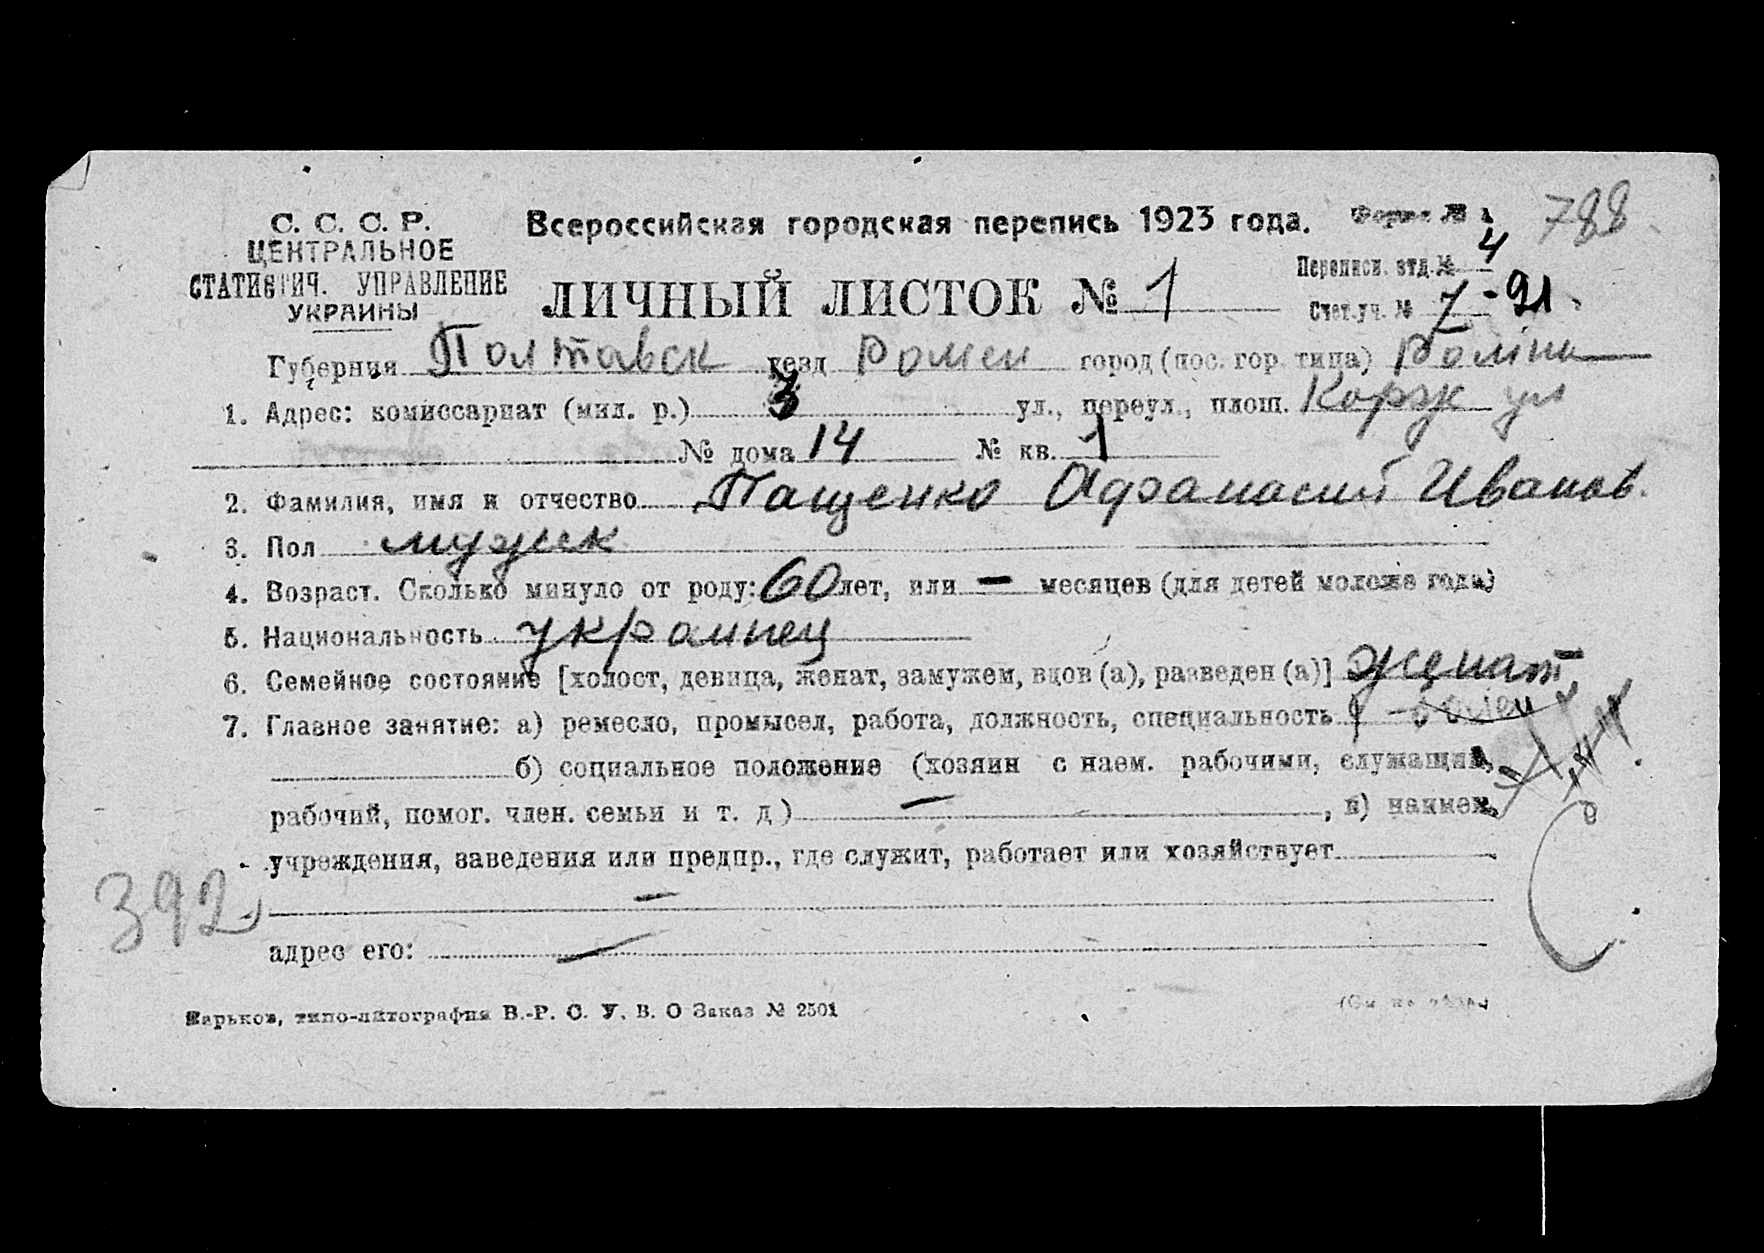 С. С. С. Р.
ЦЕНТРАЛЬНОЕ
СТАТИСТИЧ. УПРАВЛЕНИЕ
УКРАИНЫ
Всероссийская городская перепись 1923 года.
Форма № 1 788
ЛИЧНЫЙ ЛИСТОК № 1
Переписн. отд. № 4
Счет. уч. № 7 - 91
Губерния Полтавск уезд Ромен город (пос. гор. типа) Ромни
1. Адрес: комиссариат (мил. р.) 3 ул., переул., площ. Корж ул
№ дома 14 № кв. 1
2. Фамилия, имя и отчество Пащенко Афанасий Иванов.
3. Пол мужск
4. Возраст. Сколько минуло от роду: 60 лет, или — месяцев (для детей моложе года)
5. Национальность украинец
6. Семейное состояние [холост, девица, женат, замужем, вдов (а), разведен (а)] женат
7. Главное занятие: а) ремесло, промысел, работа, должность, специальность
б) социальное положение (хозяин с наем. рабочими, служащий,
рабочий, помог. член. семьи и т. д) — , в) наимен.
учреждения, заведения или предпр., где служит, работает или хозяйствует
392 —
адрес его: —
Харьков, типо-литография В.-Р. С. У. В. О Заказ № 2501